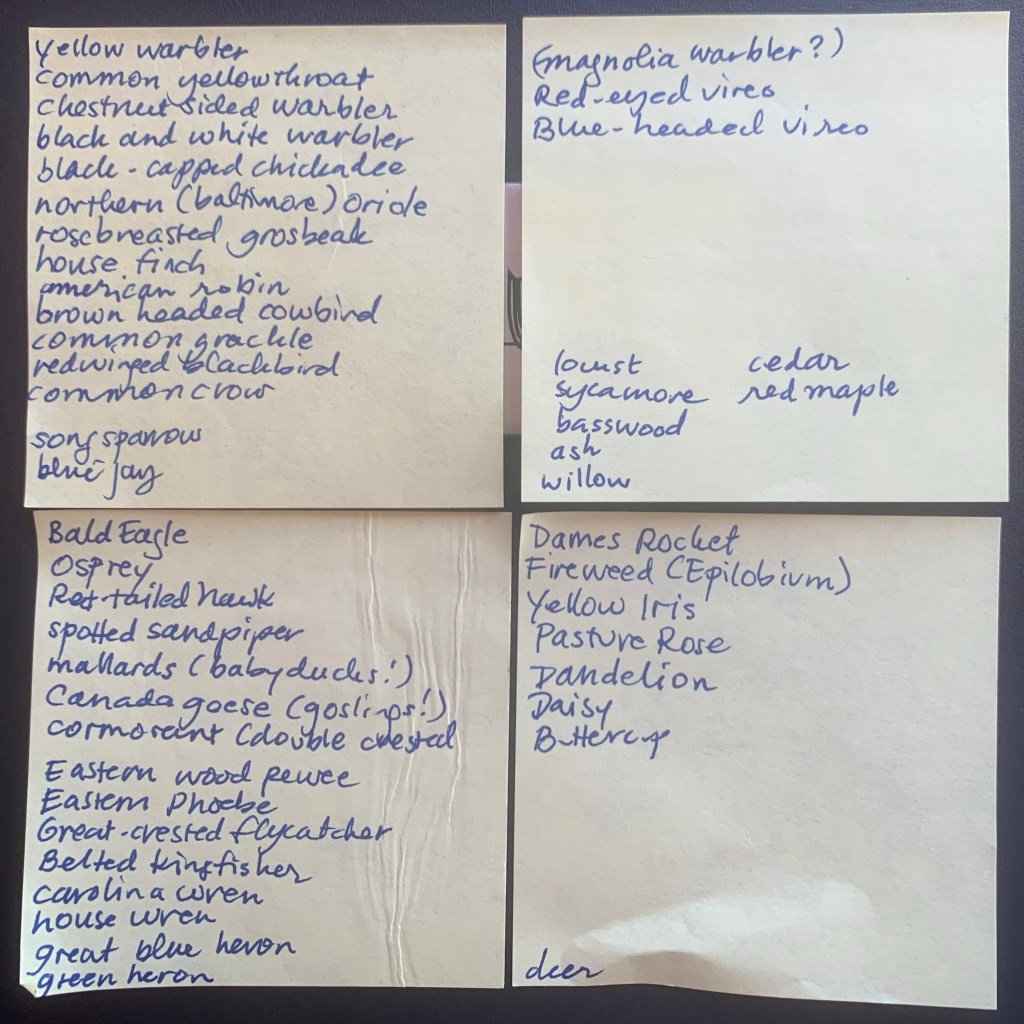 yellow warbler
common yellowthroat
chestnut sided warbler
black and white warbler
black-capped chickadee
northern (baltimore) oriole
rosebreasted grosbeak
house finch
american robin
brown headed cowbird
common grackle
redwinged blackbird
common crow
song sparrow
blue jay
(magnolia warbler?)
Red-eyed vireo
Blue-headed vireo
locust cedar
sycamore red maple
basswood
ash
willow
Bald Eagle
Osprey
Red-tailed hawk
spotted sandpiper
mallards (baby ducks!)
Canada goese (goslings!)
cormorant (double crested
Eastern wood pewee
Eastern Phoebe
Great-crested flycatcher
Belted kingfisher
carolina wren
house wren
great blue heron
green heron
Dames Rocket
Fireweed (Epilobium)
Yellow Iris
Pasture Rose
Dandelion
Daisy
Buttercup
deer